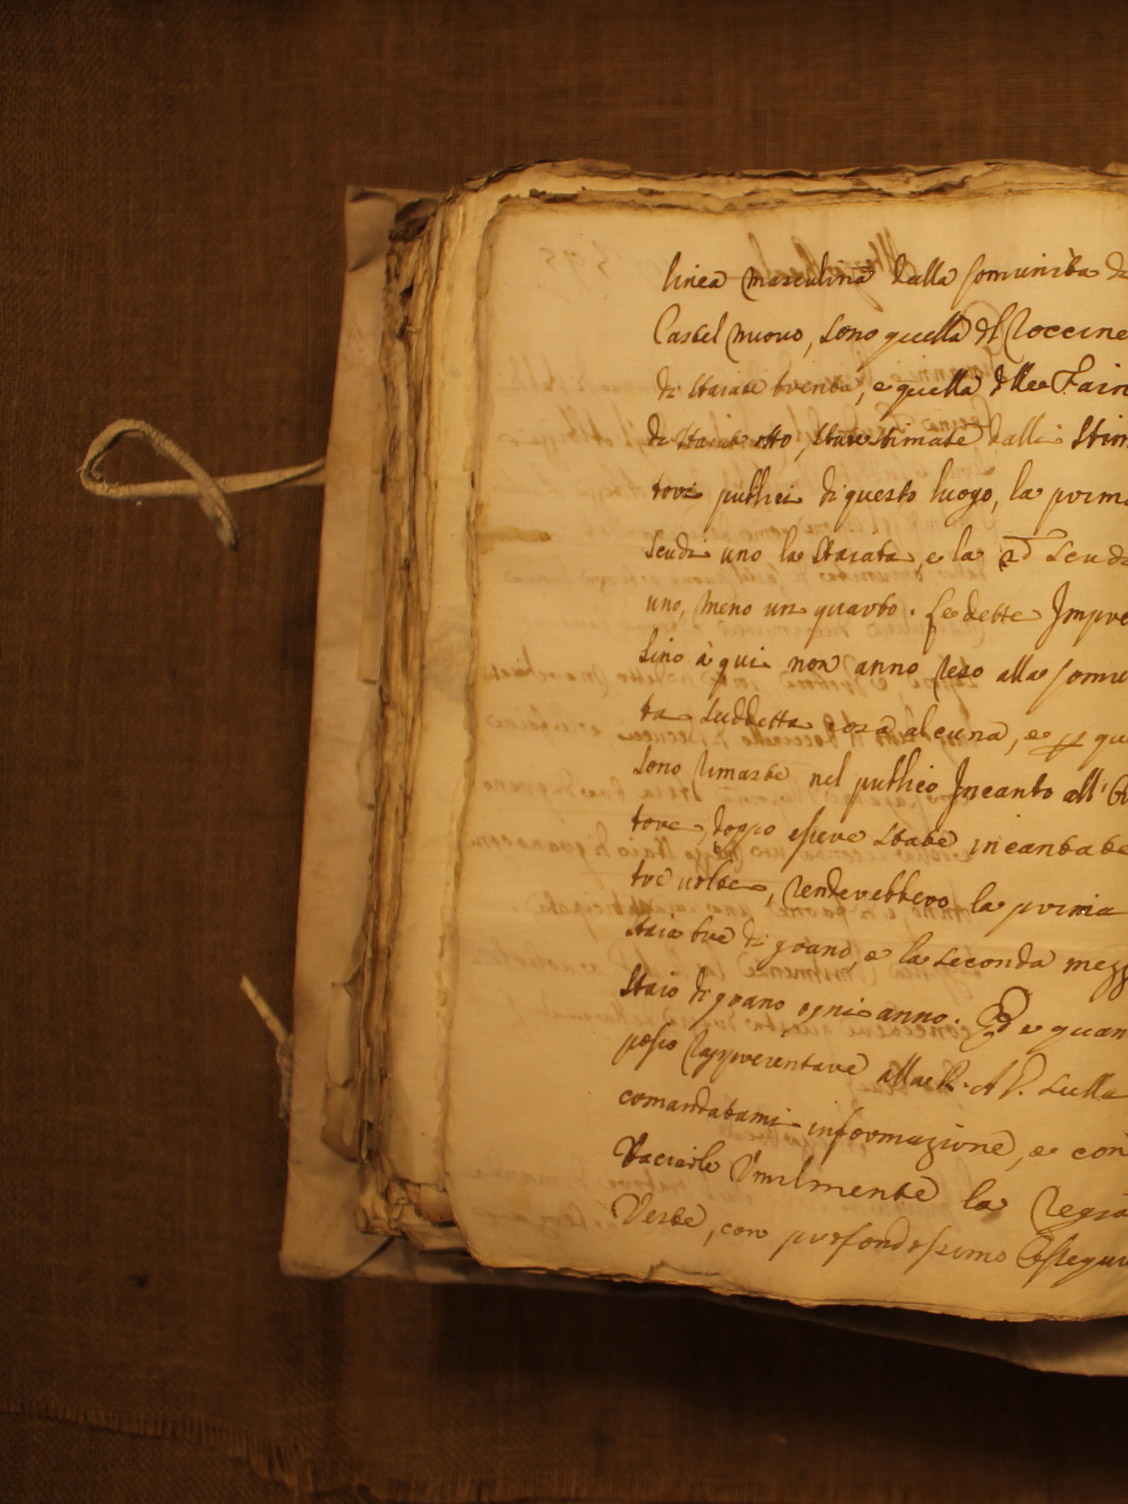 linea masculina dalla Comunità di
Castel nuovo, sono quella del Poccine
di staiate trenta, e quella delle Fain
di staiate otto, state stimate dalli Stim
tori publici di questo luogo, la prima
scudi uno la staiata, e la 2.da scudi
uno, meno un quarto. Le dette Impre
sino à qui non anno reso alla Comu
tà suddetta cosa alcuna, e p. que
sono rimaste nel publico Incanto all'
tore, doppo essere state incantate
tre volte, renderebbero la prima
staia tre di grano, e la seconda mezz
staio di grano ogni anno. Ed è quan
posso rappresentare alla R. A. V. sulla
comandatami informazione, e con
baciarle Umilmente la Regia
Veste, con profondissimo Ossequi